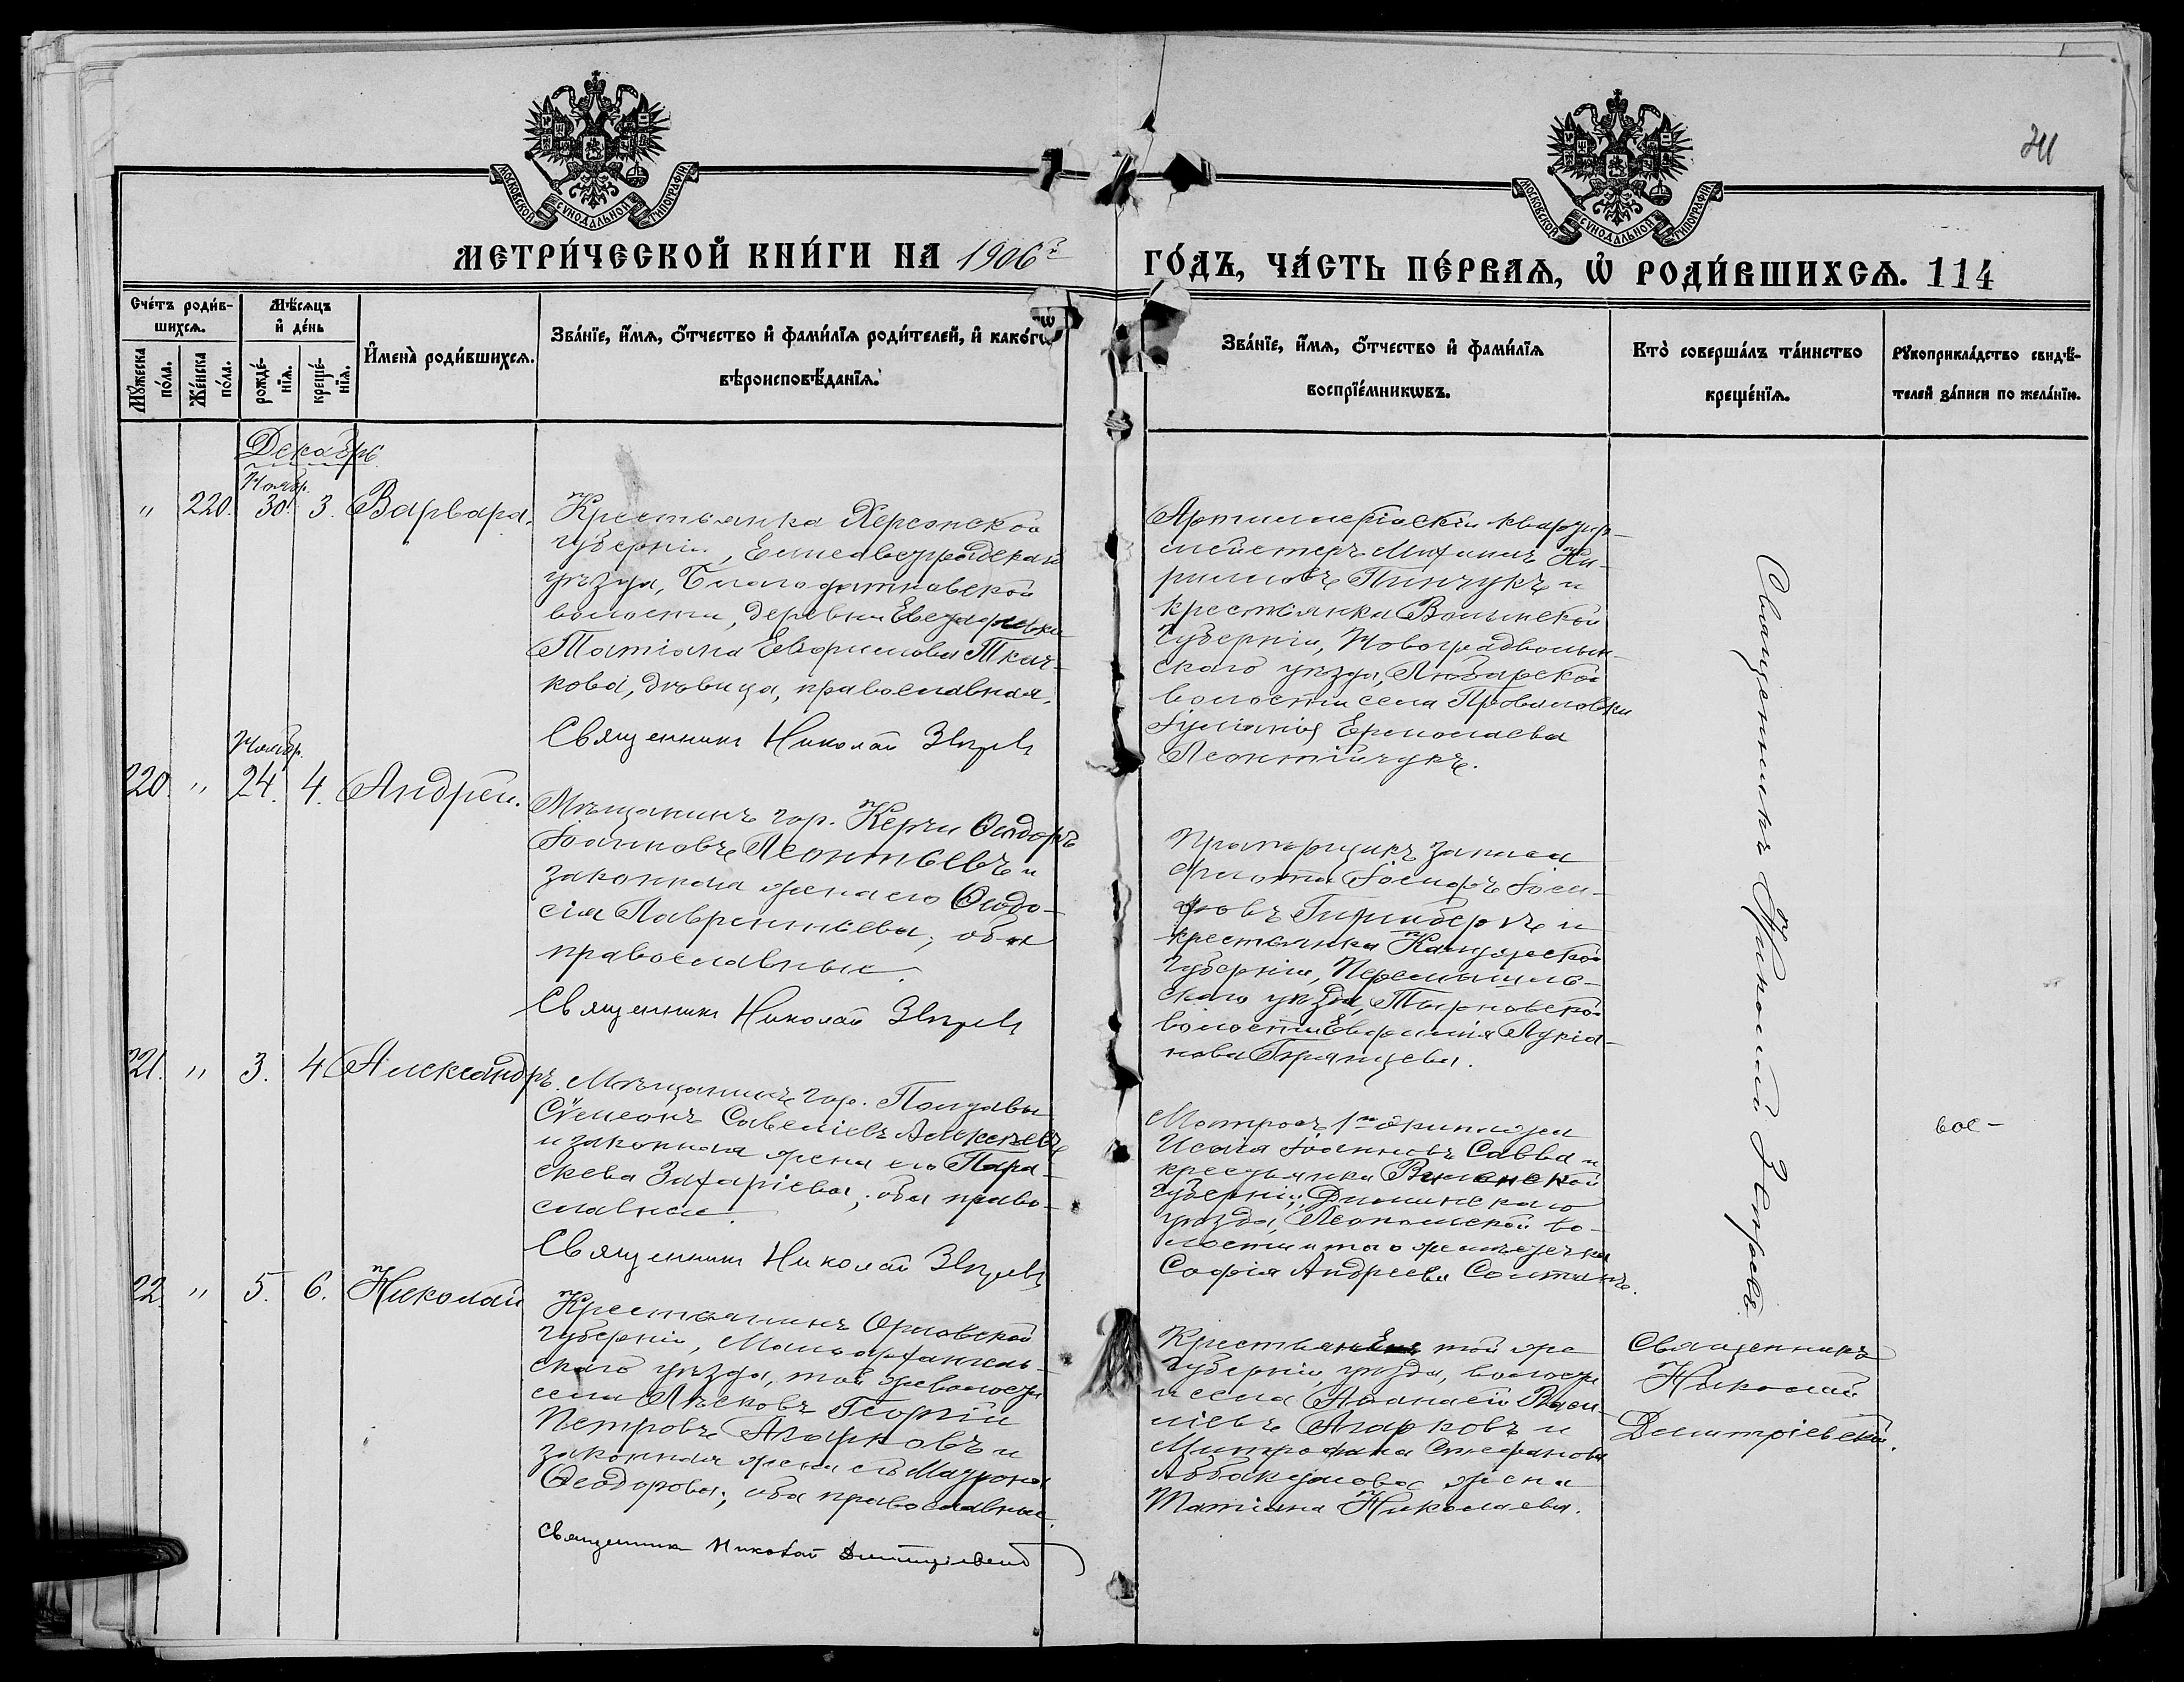 МОСКОВСКОЙ СѴНОДАЛЬНОЙ ТИПОГРАФІИ
МОСКОВСКОЙ СѴНОДАЛЬНОЙ ТИПОГРАФІИ
МЕТРИ́ЧЕСКОЙ КНИ́ГИ НА 1906 г
ГО́ДЪ, ЧА́СТЬ ПЕ́РВАЯ, Ѡ҆ РОДИ́ВШИХСЯ. 114
Сче́тъ роди́в-
шихся.
Му́жеска по́ла.
Же́нска по́ла.
Мѣ́сяцъ
и҆ де́нь
рожде́-
нїя.
креще́-
нїя.
И҆мена̀ роди́вшихся.
Зва́нїе, и҆́мя, ѻ҆́тчество и҆ фами́лїя роди́телей, и҆ како́гѡ
вѣроисповѣ́данїя.
Зва́нїе, и҆́мя, ѻ҆́тчество и҆ фами́лїя
воспрїе́мникѡвъ.
Кто̀ соверша́лъ та́инство
креще́нїя.
Рꙋкоприкла́дство свидѣ́-
телей за́писи по жела́нїю.
Декабрь
Ноябр.
" 220. 30. 3. Варвара.
Крестьянка Херсонской
губерніи, Елисаветградскаго
уѣзда, Благодатновской
волости, деревни
Татіана Евфимова Ткач-
кова, дѣвица, православная.
Священникъ Николай Звѣревъ
Артиллерійскій квартир-
мейстеръ Михаилъ Ки-
рилловъ Пинчукъ и
крестьянка Волынской
губерніи, Новоградволын-
скаго уѣзда, Любарской
волости села
Іуліанія Ермолаева
Леонтійчукъ.
Ноябр.
220. " 24. 4. Андрей.
Мѣщанинъ гор. Керчи Ѳеодоръ
Іоанновъ Леонтьевъ и
законная жена его Ѳеодо-
сія Лаврентьева, оба
православные.
Священникъ Николай Звѣревъ
Прапорщикъ запаса
флота Іосифъ Іоси-
фовъ и
крестьянка Калужской
губерніи, Перемышль-
скаго уѣзда,
волости Евфимія Лукіа-
нова
221. " 3. 4. Александръ.
Мѣщанинъ гор. Полтавы
Сѵмеонъ Савеліевъ Алексѣевъ
и законная жена его Пара-
скева Захаріева, оба право-
славные.
Священникъ Николай Звѣревъ
Матросъ 1й
Исаія Іоанновъ Савва и
крестьянка Виленской
губерніи, Дисненскаго
уѣзда, Леонпольской во-
лости и того же мѣстечка
Софія Андреева
Священникъ Николай Звѣревъ.
22. " 5. 6. Николай
Крестьянинъ Орловской
губерніи, Малоархангель-
скаго уѣзда, той же волости
села Лѣсковъ Георгій
Петровъ Агарковъ и
законная жена его Матрона
Ѳеодорова; оба православные.
Священникъ Николай Димитріевскій
Крестьяне той же
губерніи, уѣзда, волости
и села Аѳанасій Васи-
ліевъ Агарковъ и
Митрофана Стефанова
Аббакумова жена
Татіана Николаева.
Священникъ
Николай
Димитріевскій.